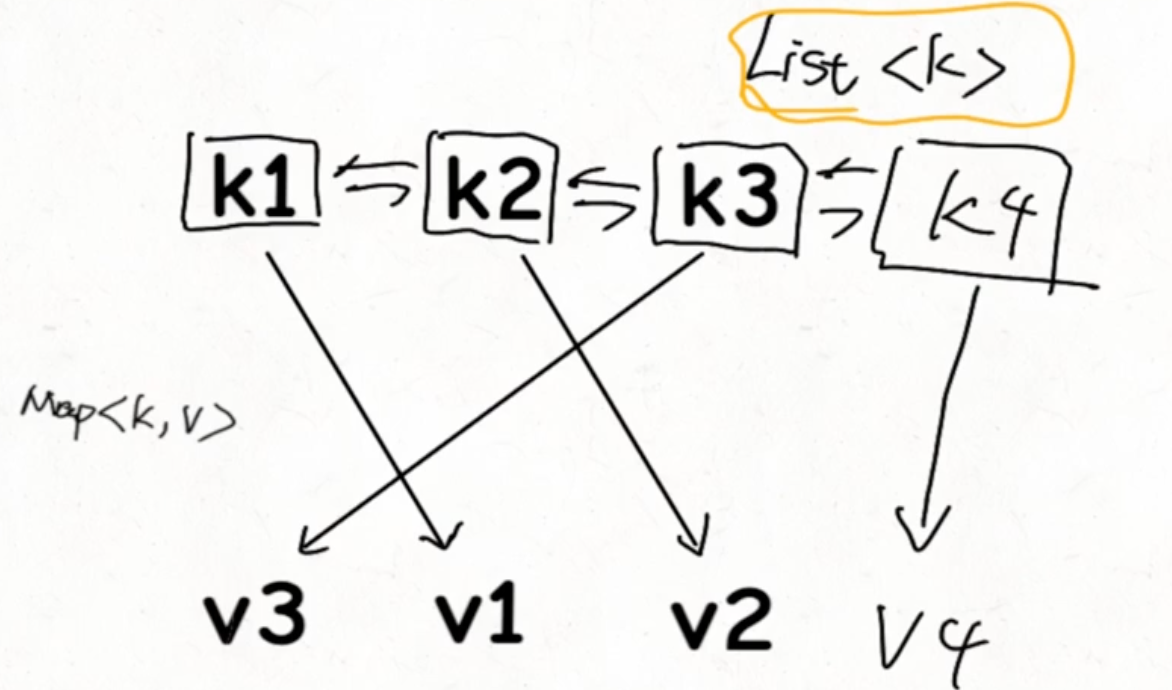 List <k>
k1 k2 k3 k4
Map<k, v>
v3 v1 v2 v4